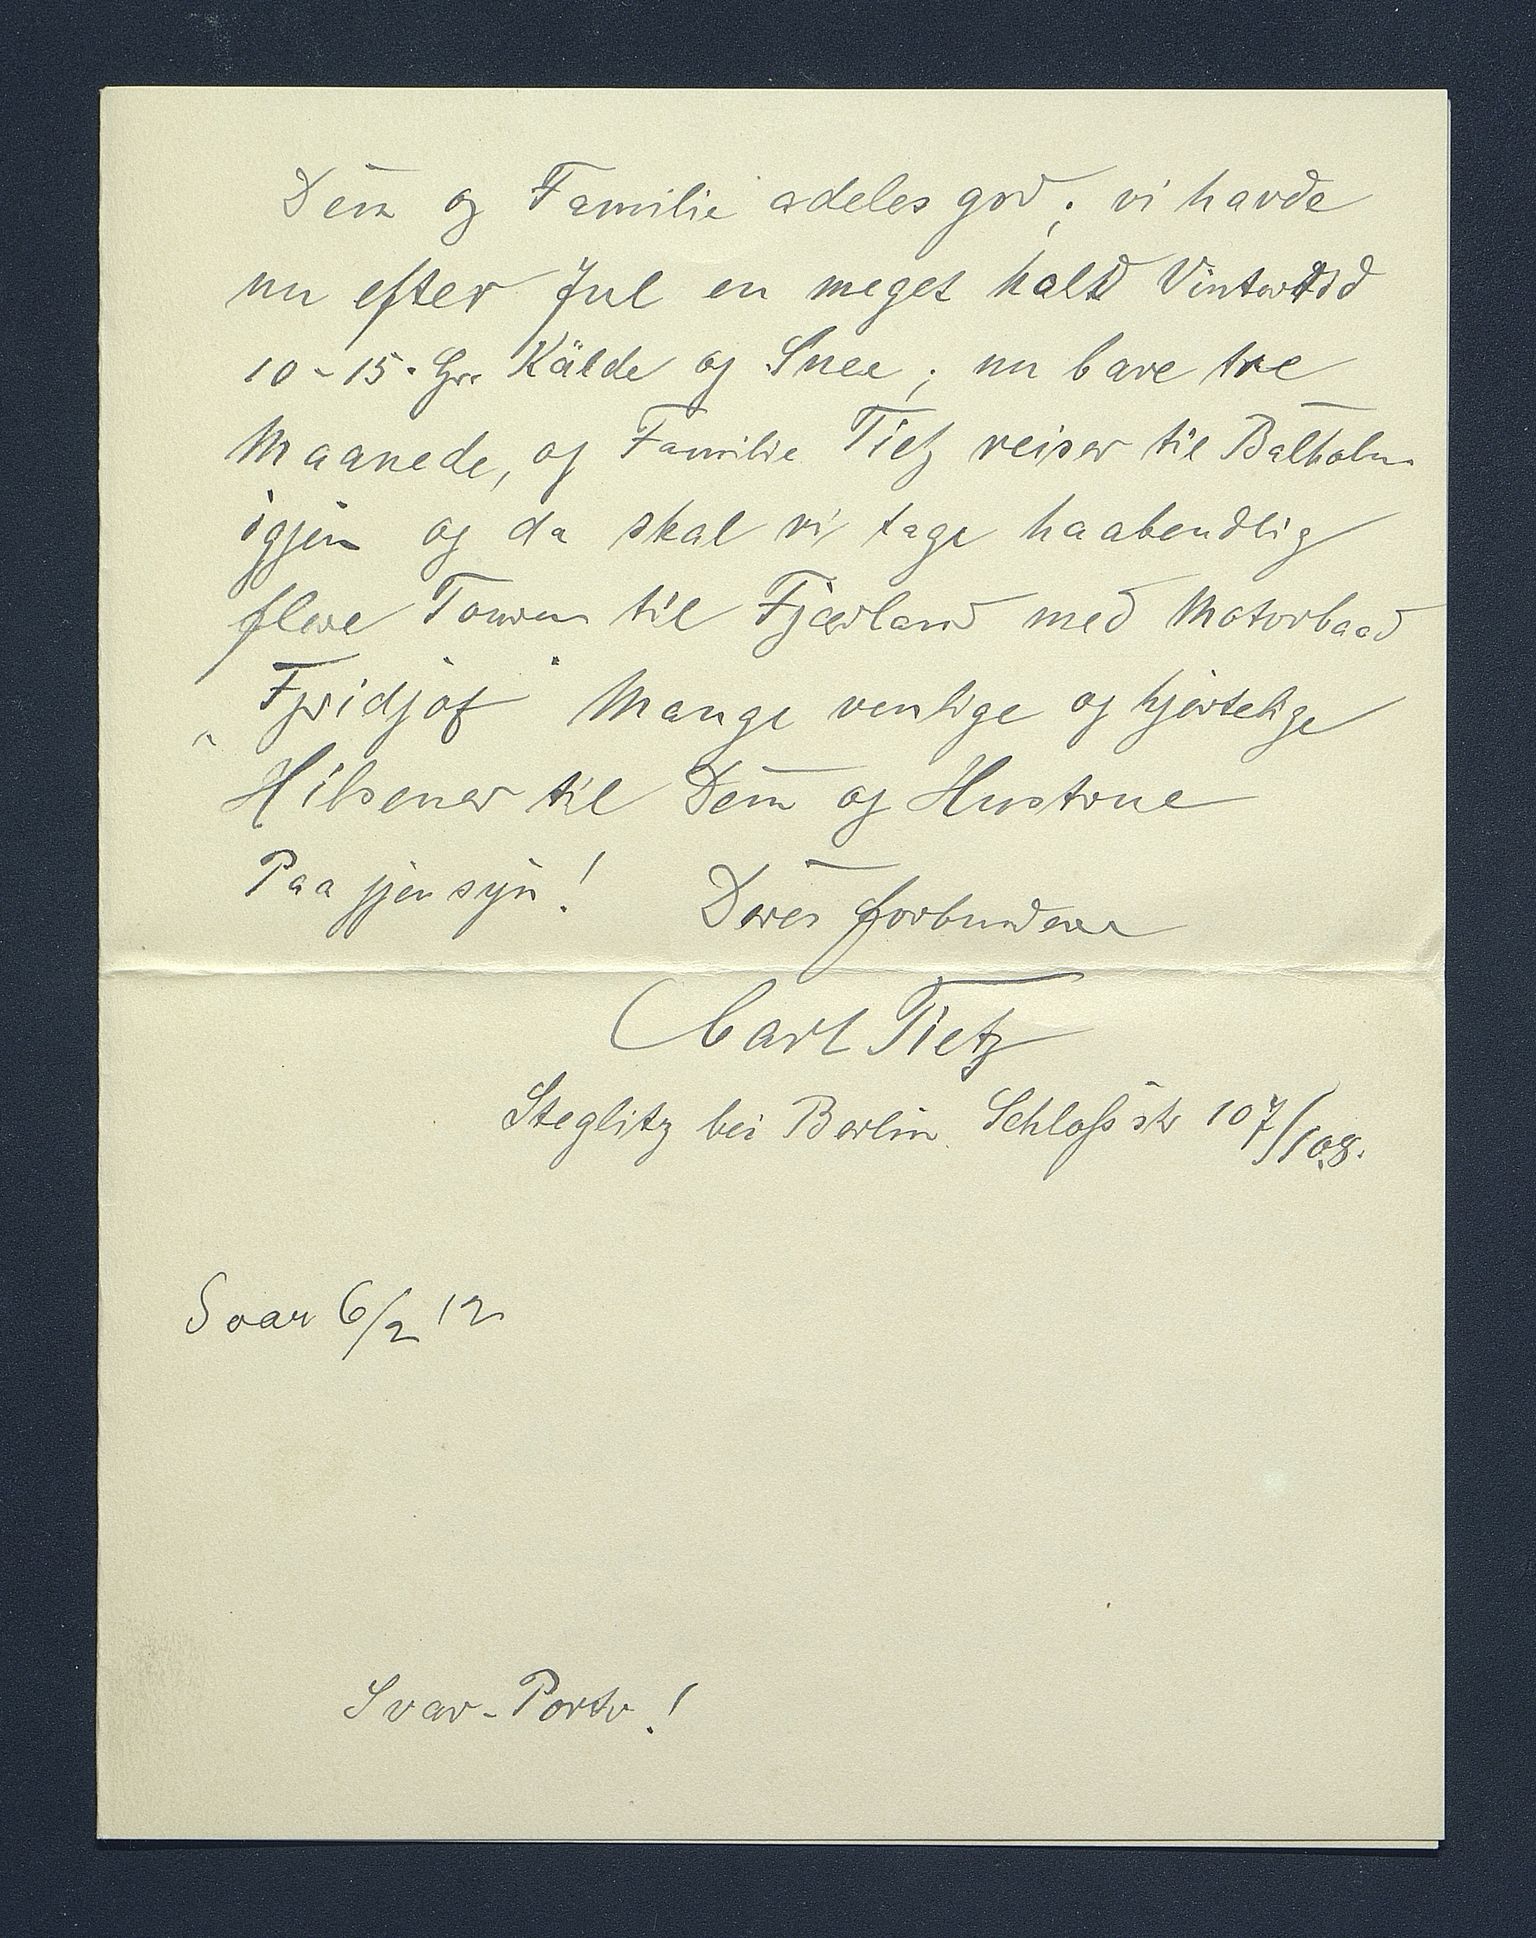 Dem og Familie adeles god; vi havde
nu efter Jul en meget kald Vintertid
10-15. Gr. Kälde og Snee; nu bare tre
Maanede, og Familie Tietz reiser til Balholm
igjen og da skal vi tage haabendlig
flere Touren til Fjærland med Motorbaad
"Fridjof" Mange venlige og hjertelige
Hilsener til Dem og Hustrue
Paa gjensyn! Deres forbundene
Carl Tietz
Steglitz bei Berlin Schloßstr 107/108.
Svar 6/2 12
Svar-Porto!